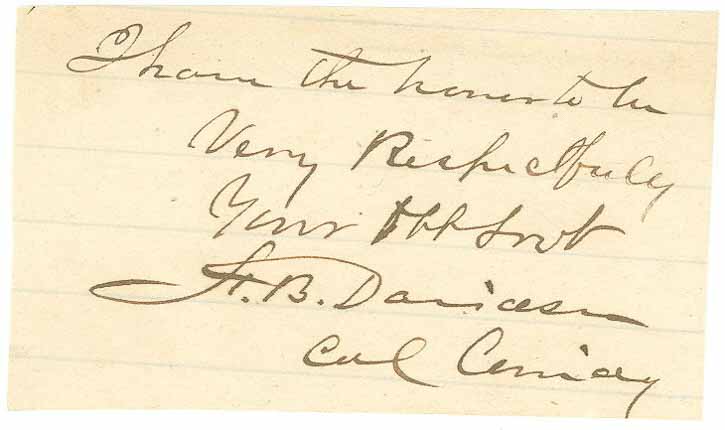 I have the honor to be
Very Respectfully
Your Obt Srvt
H. B. Davidson
Col Comdg